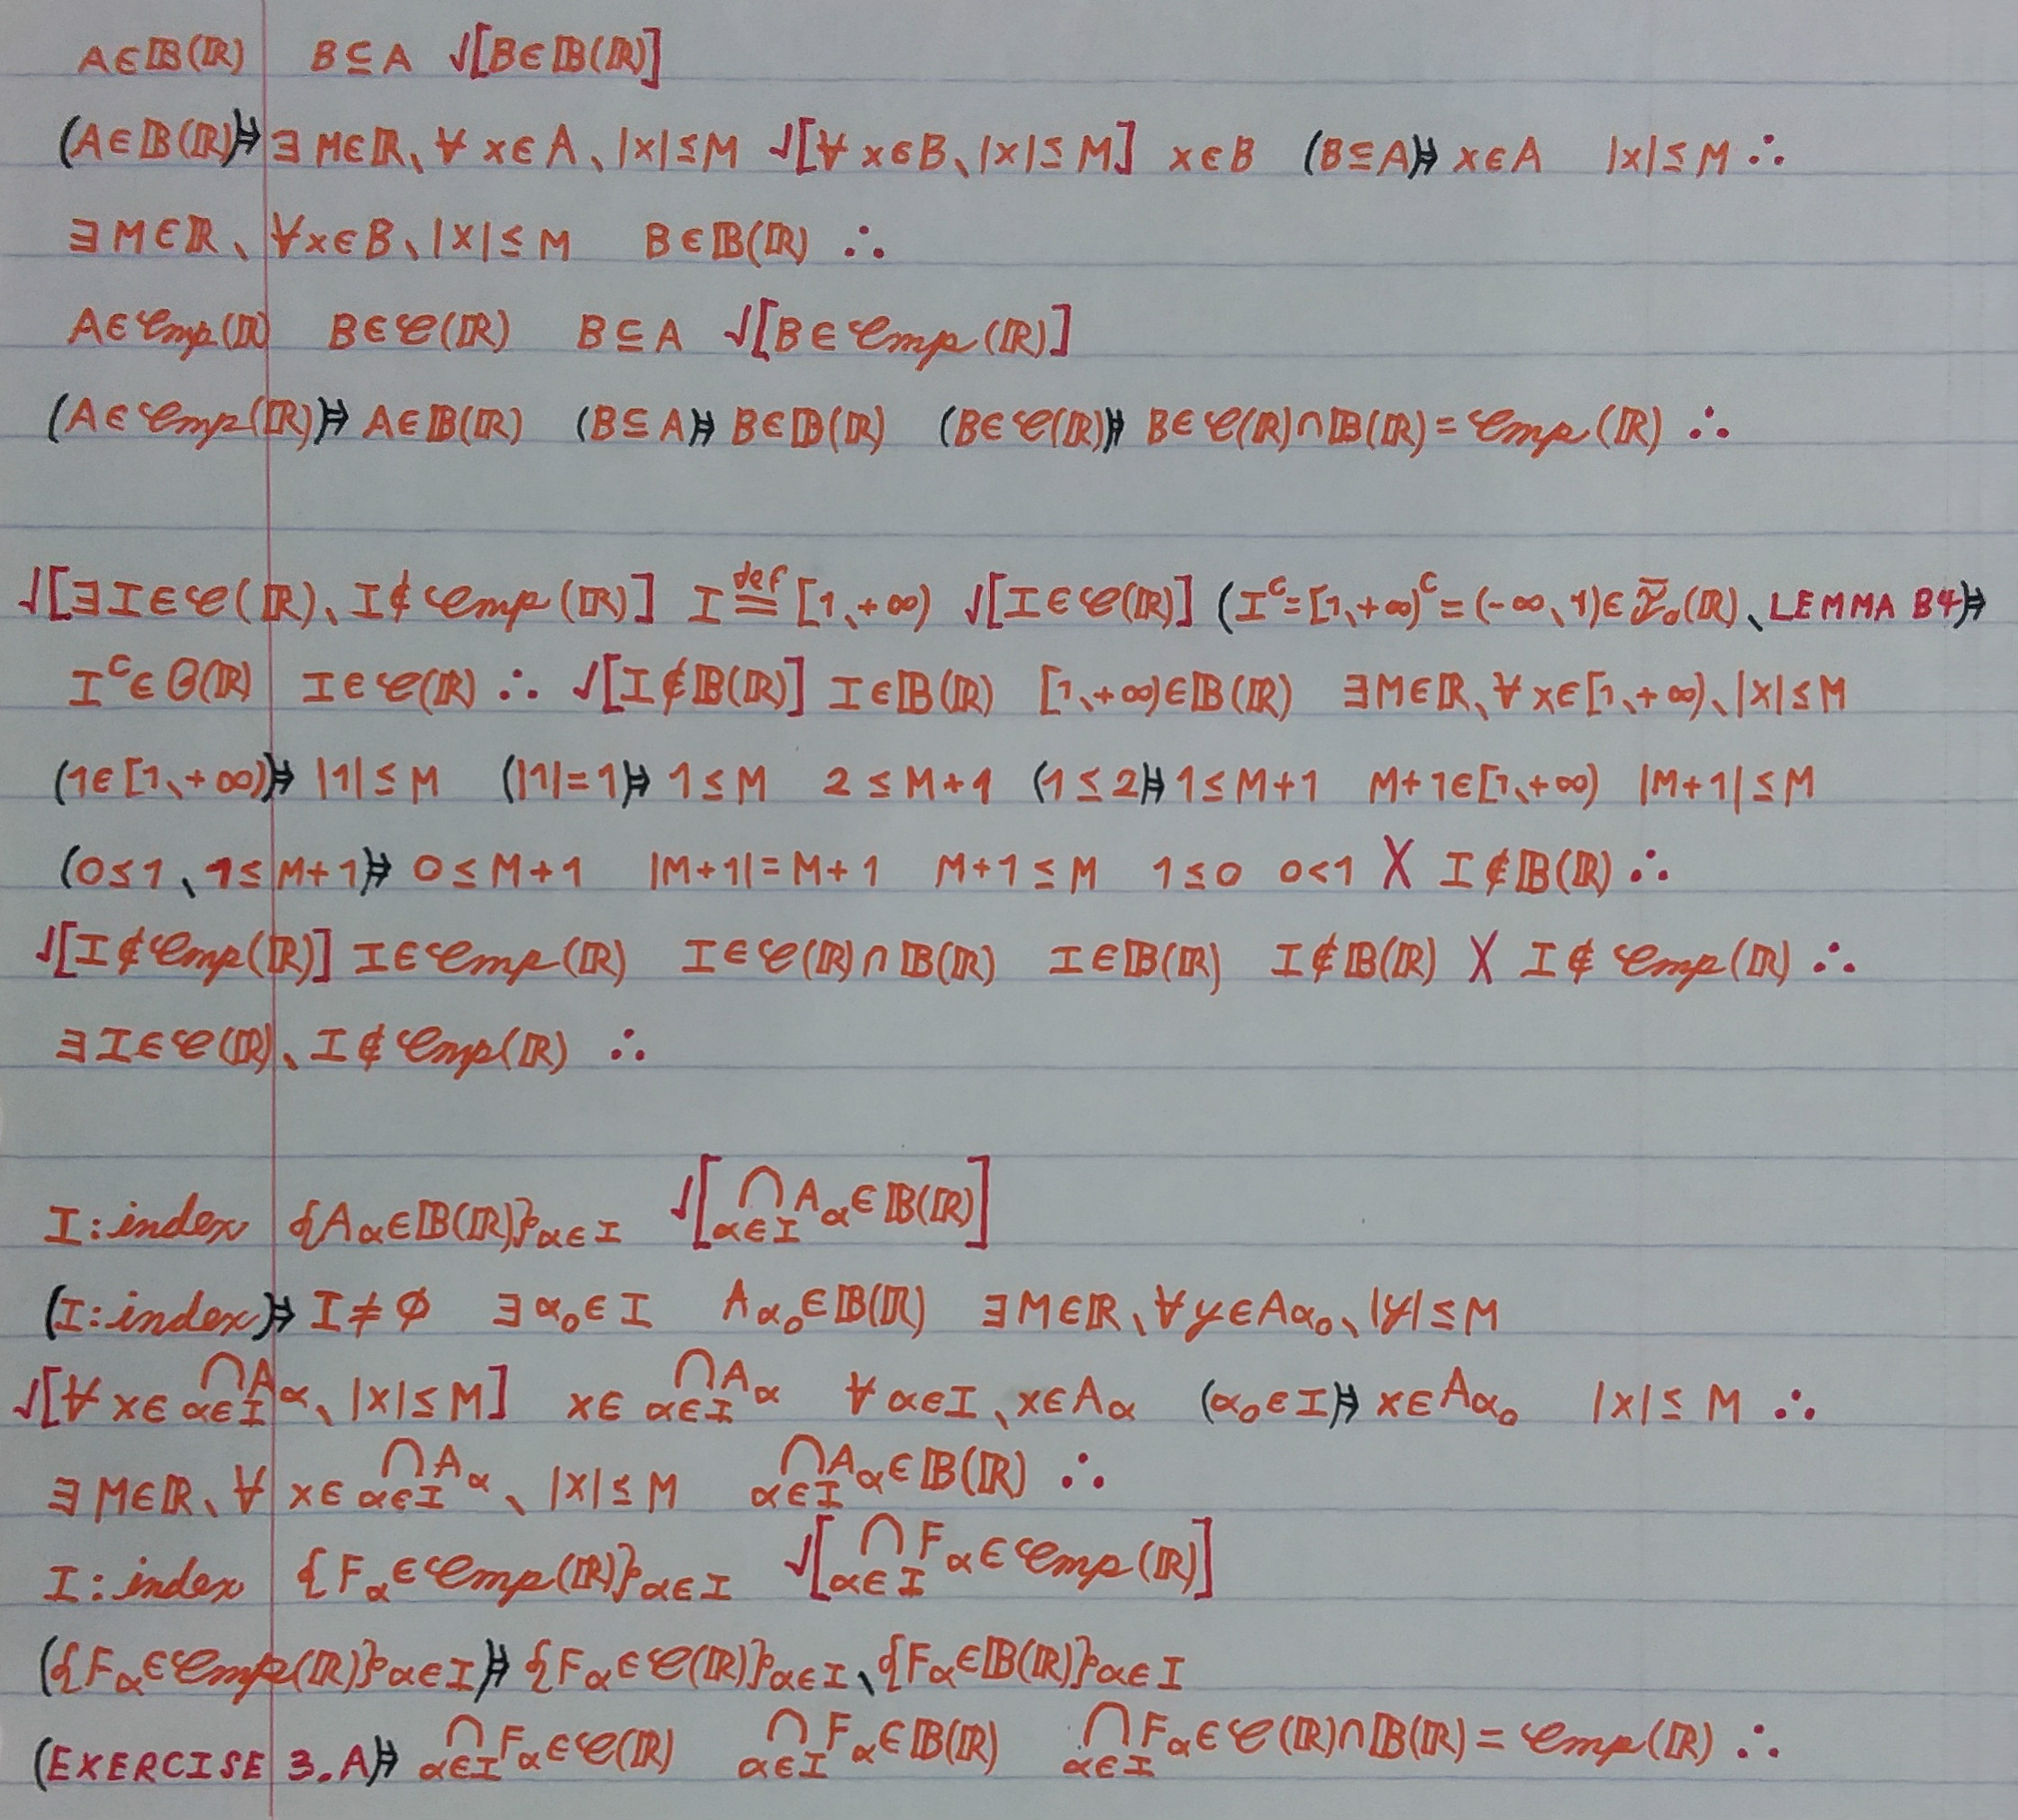 A∈𝔹(ℝ) B⊆A √[B∈𝔹(ℝ)]
(A∈𝔹(ℝ)⊧> ∃M∈ℝ、∀x∈A、|x|≤M √[∀x∈B、|x|≤M] x∈B (B⊆A)⊧> x∈A |x|≤M ∴
∃M∈ℝ、∀x∈B、|x|≤M B∈𝔹(ℝ) ∴
A∈𝒞mp(ℝ) B∈𝒞(ℝ) B⊆A √[B∈𝒞mp(ℝ)]
(A∈𝒞mp(ℝ)⊧> A∈𝔹(ℝ) (B⊆A⊧> B∈𝔹(ℝ) (B∈𝒞(ℝ)⊧> B∈𝒞(ℝ)∩𝔹(ℝ)=𝒞mp(ℝ) ∴
√[∃I∈𝒞(ℝ)、I∉𝒞mp(ℝ)] I ≝ [1、+∞) √[I∈𝒞(ℝ)] (Iᶜ=[1、+∞)ᶜ=(-∞、1)∈ (ℝ)、LEMMA B4⊧>
Iᶜ∈𝒪(ℝ) I∈𝒞(ℝ) ∴ √[I∉𝔹(ℝ)] I∈𝔹(ℝ) [1、+∞)∈𝔹(ℝ) ∃M∈ℝ、∀x∈[1、+∞)、|x|≤M
(1∈[1、+∞)⊧> |1|≤M (|1|=1⊧> 1≤M 2≤M+1 (1≤2⊧> 1≤M+1 M+1∈[1、+∞) |M+1|≤M
(0≤1、1≤M+1⊧> 0≤M+1 |M+1|=M+1 M+1≤M 1≤0 0<1 X I∉𝔹(ℝ) ∴
√[I∉𝒞mp(ℝ)] I∈𝒞mp(ℝ) I∈𝒞(ℝ)∩𝔹(ℝ) I∈𝔹(ℝ) I∉𝔹(ℝ) X I∉𝒞mp(ℝ) ∴
∃I∈𝒞(ℝ)、I∉𝒞mp(ℝ) ∴
I:index {Aα∈𝔹(ℝ)}α∈I √[⋂α∈I Aα∈𝔹(ℝ)]
(I:index⊧> I≠∅ ∃α₀∈I Aα₀∈𝔹(ℝ) ∃M∈ℝ、∀y∈Aα₀、|y|≤M
√[∀x∈⋂α∈I Aα、|x|≤M] x∈⋂α∈I Aα ∀α∈I、x∈Aα (α₀∈I⊧> x∈Aα₀ |x|≤M ∴
∃M∈ℝ、∀x∈⋂α∈I Aα、|x|≤M ⋂α∈I Aα∈𝔹(ℝ) ∴
I:index {Fα∈𝒞mp(ℝ)}α∈I √[⋂α∈I Fα∈𝒞mp(ℝ)]
({Fα∈𝒞mp(ℝ)}α∈I⊧> {Fα∈𝒞(ℝ)}α∈I、{Fα∈𝔹(ℝ)}α∈I
(EXERCISE 3.A⊧> ⋂α∈I Fα∈𝒞(ℝ) ⋂α∈I Fα∈𝔹(ℝ) ⋂α∈I Fα∈𝒞(ℝ)∩𝔹(ℝ)=𝒞mp(ℝ) ∴